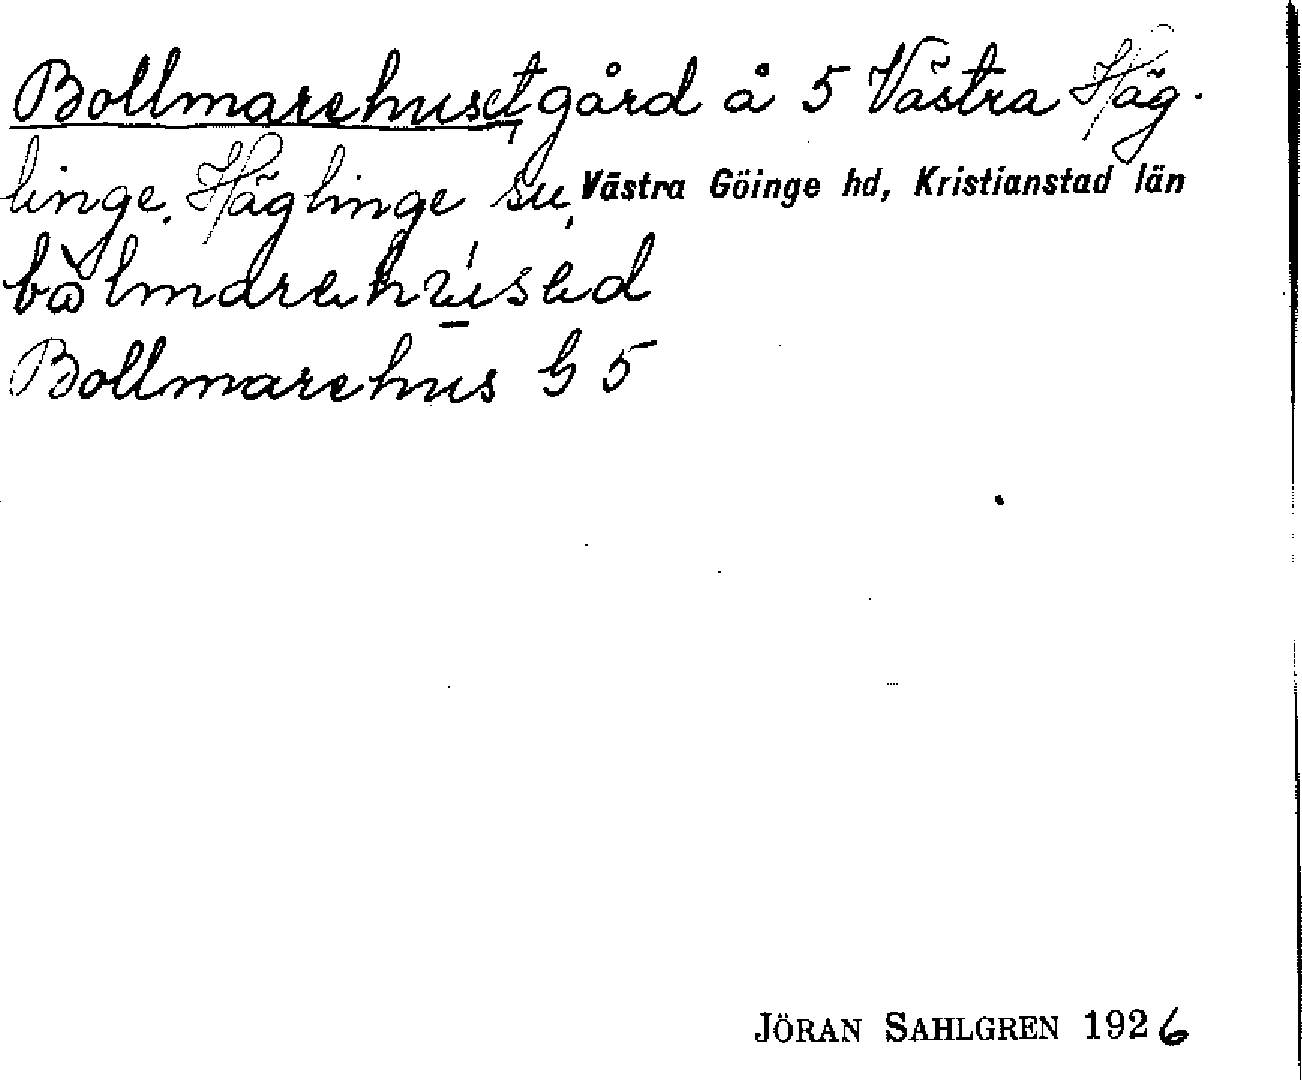 Bollmarehuset, gård å 5 Västra Häg-
linge, Häglinge sn, Västra Göinge hd, Kristianstad län
Bollmarehus G 5
JÖRAN SAHLGREN 1926